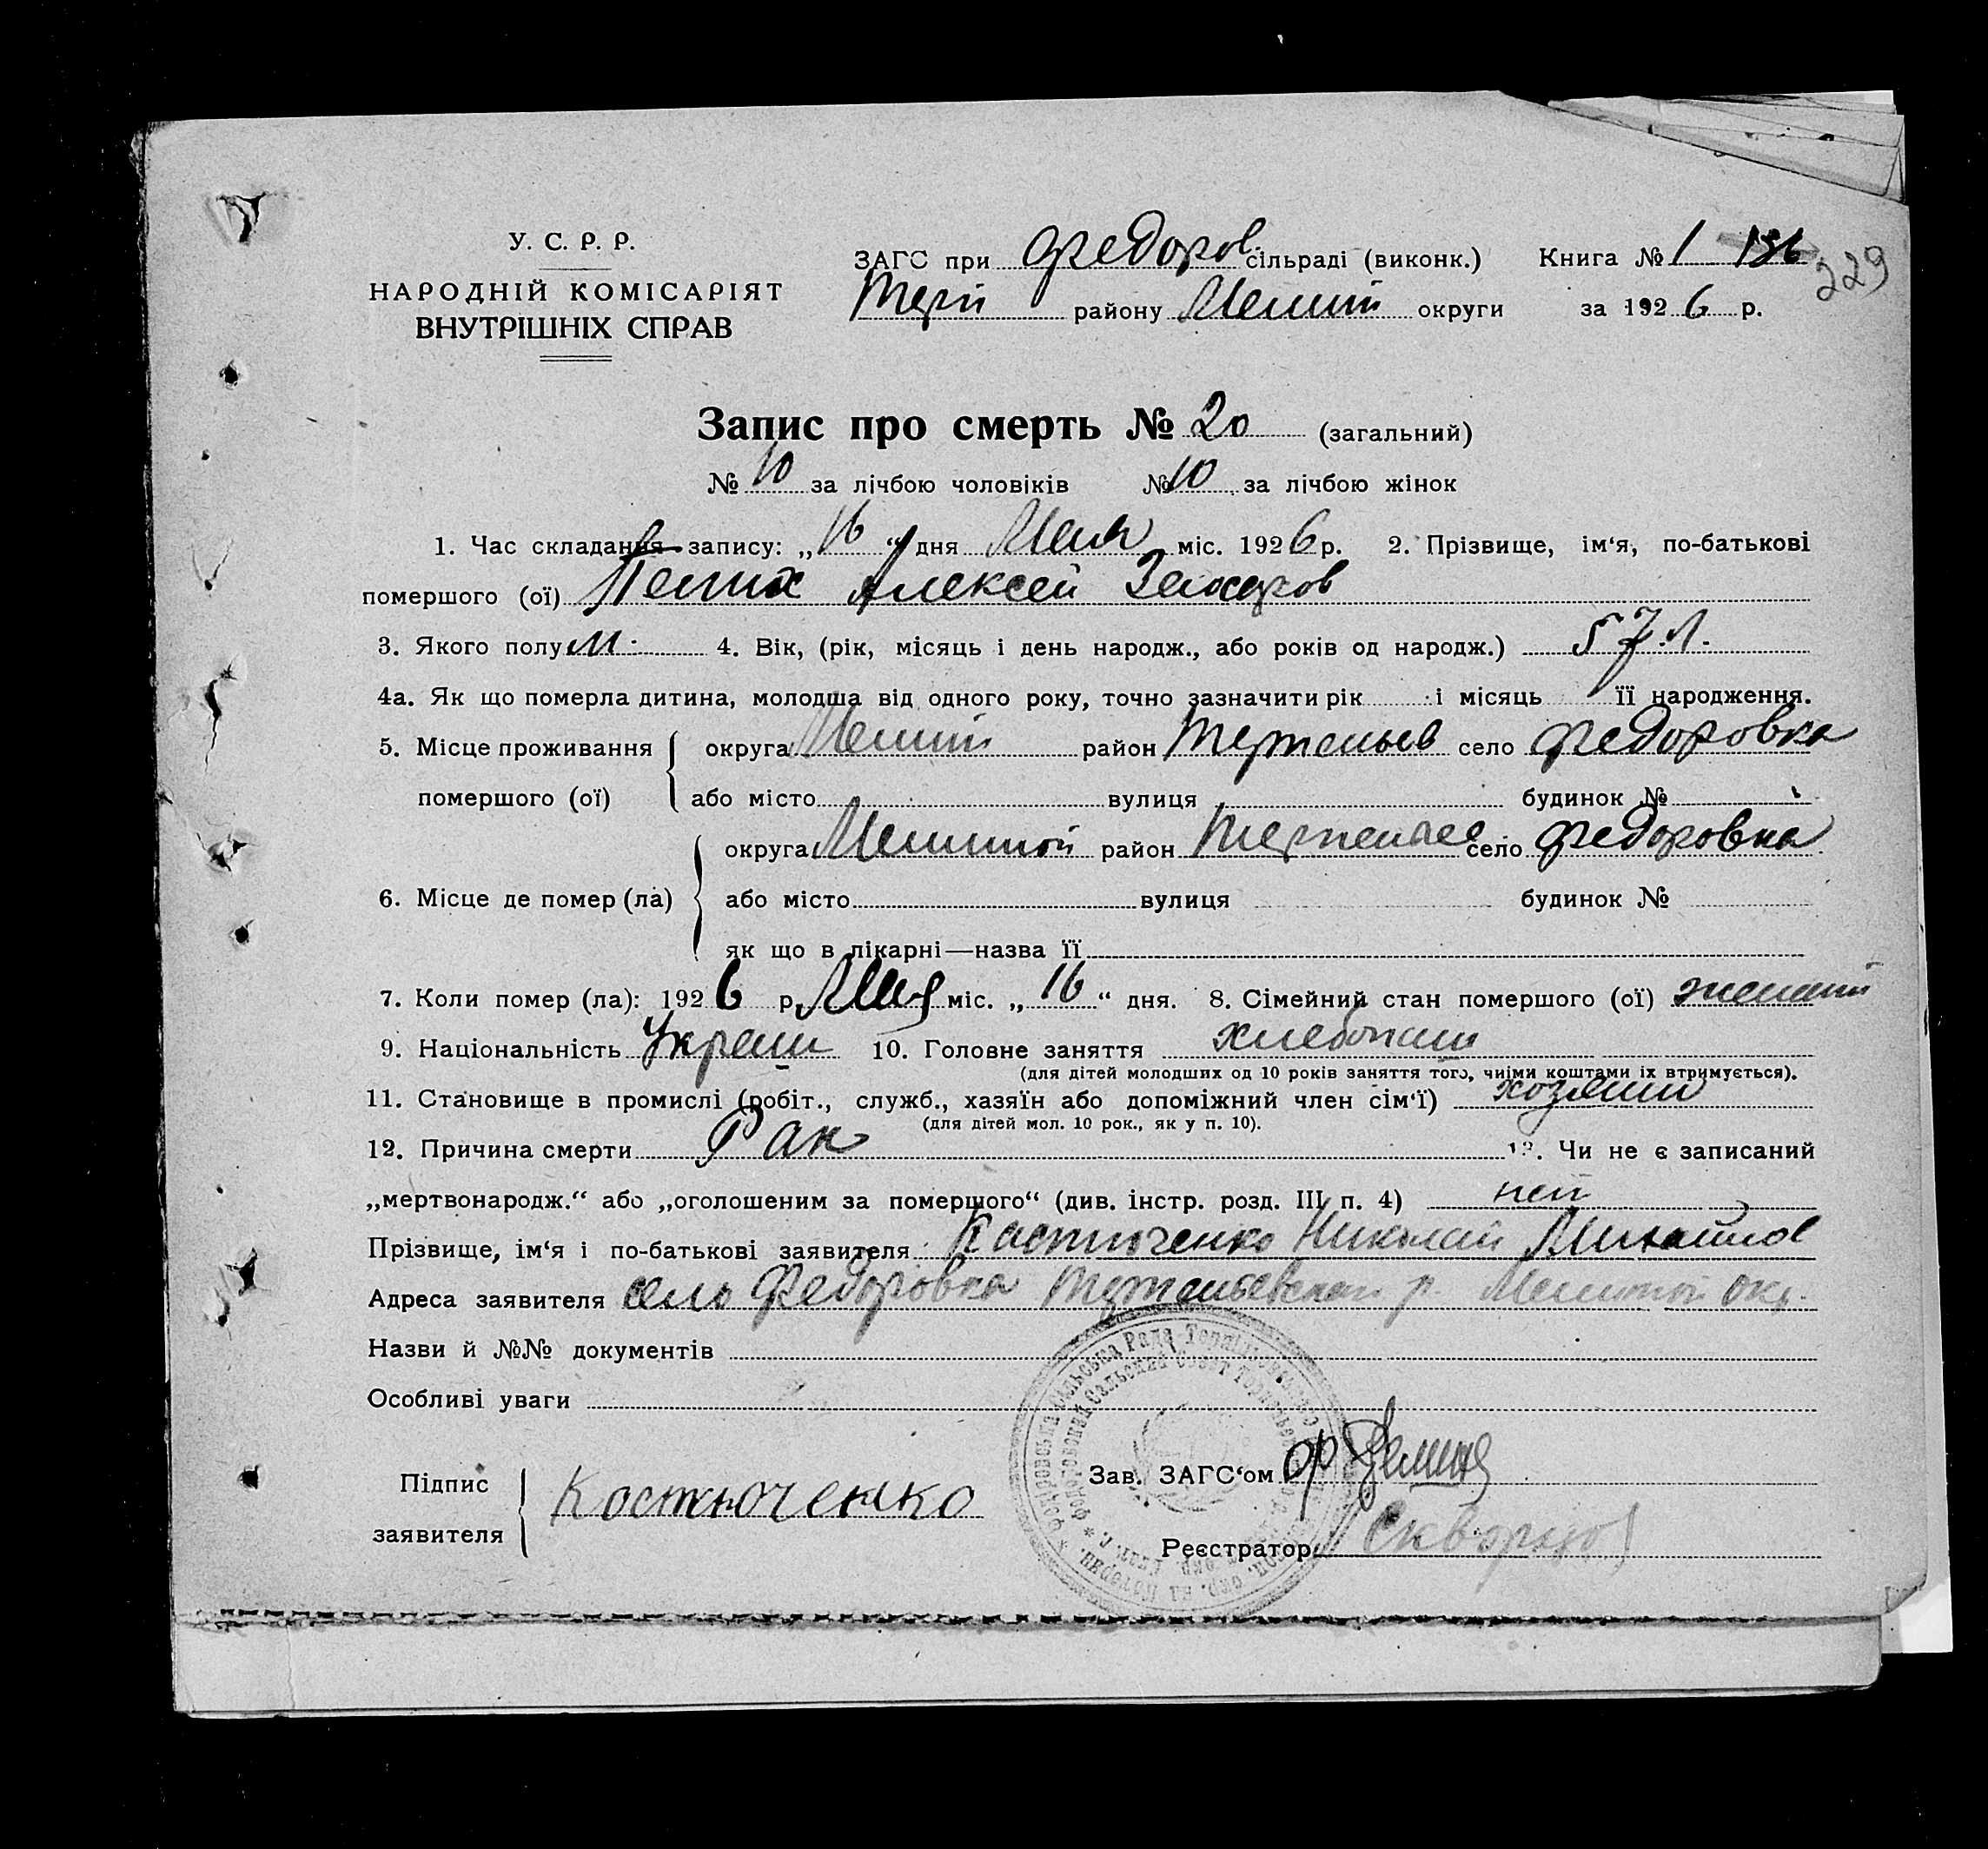 У. С. Р. Р.
НАРОДНІЙ КОМІСАРІЯТ
ВНУТРІШНІХ СПРАВ
ЗАГС при Федоров. сільраді (виконк.) Книга № 1 186 229
району округи за 1926 р.
Запис про смерть № 20 (загальний)
№ 10 за лічбою чоловіків № 10 за лічбою жінок
1. Час складання запису: „16“ дня міс. 1926 р. 2. Прізвище, ім‘я, по-батькові
помершого (ої) Алексей
3. Якого полу м. 4. Вік, (рік, місяць і день народж., або років од народж.) 57 л.
4а. Як що померла дитина, молодша від одного року, точно зазначити рік і місяць її народження.
5. Місце проживання округа район село Федоровка
помершого (ої) або місто вулиця будинок №
округа район село Федоровка
6. Місце де помер (ла) або місто вулиця будинок №
як що в лікарні—назва її
7. Коли помер (ла): 1926 р. міс. „16“ дня. 8. Сімейний стан помершого (ої) женатий
9. Національність Украин 10. Головне заняття хлебопаш
(для дітей молодших од 10 років заняття того, чиїми коштами їх втримується).
11. Становище в промислі (робіт., служб., хазяїн або допоміжний член сім‘ї) хозяин
(для дітей мол. 10 рок., як у п. 10).
12. Причина смерти Рак 13. Чи не є записаний
„мертвонародж.“ або „оголошеним за помершого“ (див. інстр. розд. III п. 4) нет
Прізвище, ім‘я і по-батькові заявителя Костюченко Николай Михайлов
Адреса заявителя село Федоровка р. окр.
Назви й №№ документів
Особливі уваги
Підпис заявителя Костюченко
Зав. ЗАГС‘ом
Реєстратор Скворцов